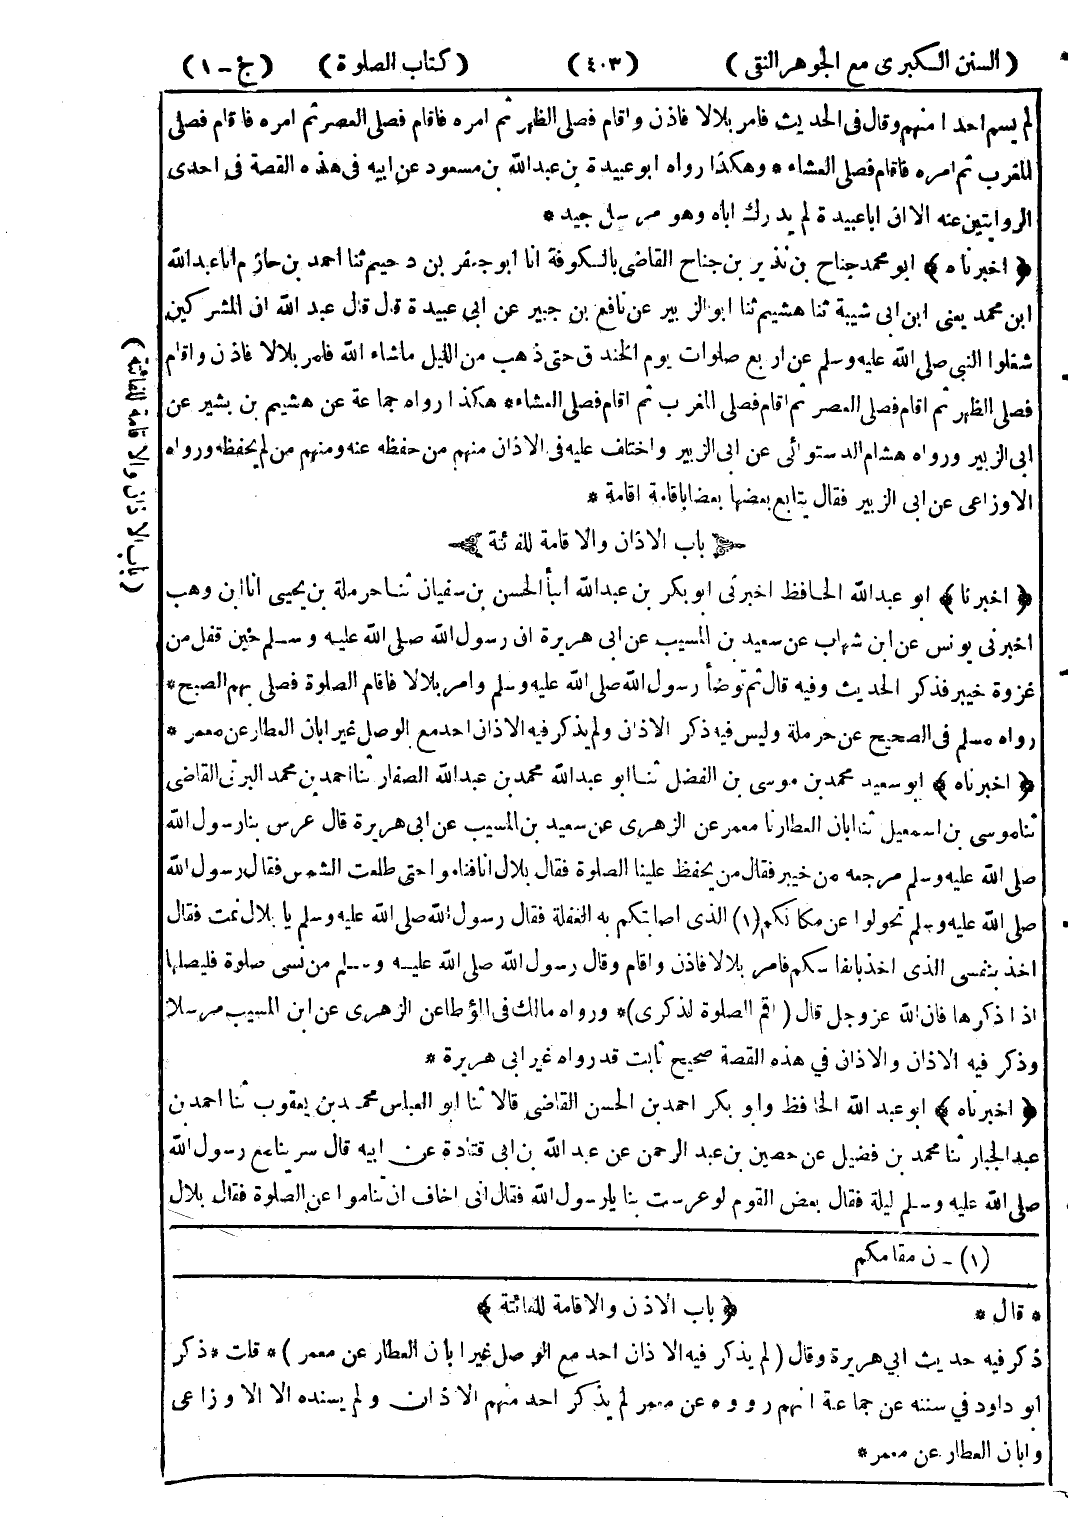 (السنن الكبرى مع الجوهر النقى) (٤٠٣) (كتاب الصلوة) (ج - ١)
لم يسم احدا منهم وقال فى الحديث فامر بلالا فاذن واقام فصلى الظهر ثم امره فاقام فصلى العصر ثم امره فاقام فصلى
المغرب ثم امره فاقام فصلى العشاء * وهكذا رواه ابو عبيدة بن عبد الله بن مسعود عن ابيه فى هذه القصة فى احدى
الروايتين عنه الا ان ابا عبيدة لم يدرك اباه وهو مرسل جيد *
﴿ اخبرناه ﴾ ابو محمد جناح بن نذير بن جناح القاضى بالكوفة انا ابو جعفر بن دحيم ثنا احمد بن حازم انا عبد الله
ابن محمد يعنى ابن ابى شيبة ثنا هشيم ثنا ابو الزبير عن نافع بن جبير عن ابى عبيدة قال قال عبد الله ان المشركين
شغلوا النبى صلى الله عليه وسلم عن اربع صلوات يوم الخندق حتى ذهب من الليل ماشاء الله فامر بلالا فاذن واقام
فصلى الظهر ثم اقام فصلى العصر ثم اقام فصلى المغرب ثم اقام فصلى العشاء * هكذا رواه جماعة عن هشيم بن بشير عن
ابى الزبير ورواه هشام الدستوائى عن ابى الزبير واختلف عليه فى الاذان منهم من حفظه عنه ومنهم من لم يحفظه ورواه
الاوزاعى عن ابى الزبير فقال يتابع بعضها بعضا باقامة اقامة *
باب الاذان والاقامة للفائتة
﴿ اخبرنا ﴾ ابو عبد الله الحافظ اخبرنى ابو بكر بن عبد الله انبأ الحسن بن سفيان ثنا حرملة بن يحيى انا ابن وهب
اخبرنى يونس عن ابن شهاب عن سعيد بن المسيب عن ابى هريرة ان رسول الله صلى الله عليه وسلم حين قفل من
غزوة خيبر فذكر الحديث وفيه قال ثم توضأ رسول الله صلى الله عليه وسلم وامر بلالا فاقام الصلوة فصلى بهم الصبح *
رواه مسلم فى الصحيح عن حرملة وليس فيه ذكر الاذان ولم يذكر فيه الاذان احد مع الوصل غير ابان العطار عن معمر *
﴿ اخبرناه ﴾ ابو سعيد محمد بن موسى بن الفضل ثنا ابو عبد الله محمد بن عبد الله الصفار ثنا احمد بن محمد البرتى القاضى
ثنا موسى بن اسمعيل ثنا ابان العطار نا معمر عن الزهرى عن سعيد بن المسيب عن ابى هريرة قال عرس بنا رسول الله
صلى الله عليه وسلم مرجعه من خيبر فقال من يحفظ علينا الصلوة فقال بلال انا فناموا حتى طلعت الشمس فقال رسول الله
صلى الله عليه وسلم تحولوا عن مكانكم (١) الذى اصابتكم به الغفلة فقال رسول الله صلى الله عليه وسلم يا بلال نمت فقال
اخذ بنفسى الذى اخذ بانفاسكم فامر بلالا فاذن واقام وقال رسول الله صلى الله عليه وسلم من نسى صلوة فليصلها
اذا ذكرها فان الله عزوجل قال (اقم الصلوة لذكرى) * ورواه مالك فى الموطا عن الزهرى عن ابن المسيب مرسلا
وذكر فيه الاذان والاذان في هذه القصة صحيح ثابت قد رواه غير ابى هريرة *
﴿ اخبرناه ﴾ ابو عبد الله الحافظ وابو بكر احمد بن الحسن القاضى قالا ثنا ابو العباس محمد بن يعقوب ثنا احمد بن
عبد الجبار ثنا محمد بن فضيل عن حصين بن عبد الرحمن عن عبد الله بن ابى قتادة عن ابيه قال سرينا مع رسول الله
صلى الله عليه وسلم ليلة فقال بعض القوم لو عرست بنا يا رسول الله فقال انى اخاف ان تناموا عن الصلوة فقال بلال
(١) - ن مقامكم
* قال * ﴿ باب الاذن والاقامة للفائتة ﴾
ذكر فيه حديث ابي هريرة وقال (لم يذكر فيه الاذان احد مع الوصل غير ابان العطار عن معمر) * قلت * ذكر
ابو داود في سننه عن جماعة انهم رووه عن معمر لم يذكر احد منهم الاذان ولم يسنده الا الاوزاعى
وابان العطار عن معمر *
(باب الاذان والاقامة للفائتة)